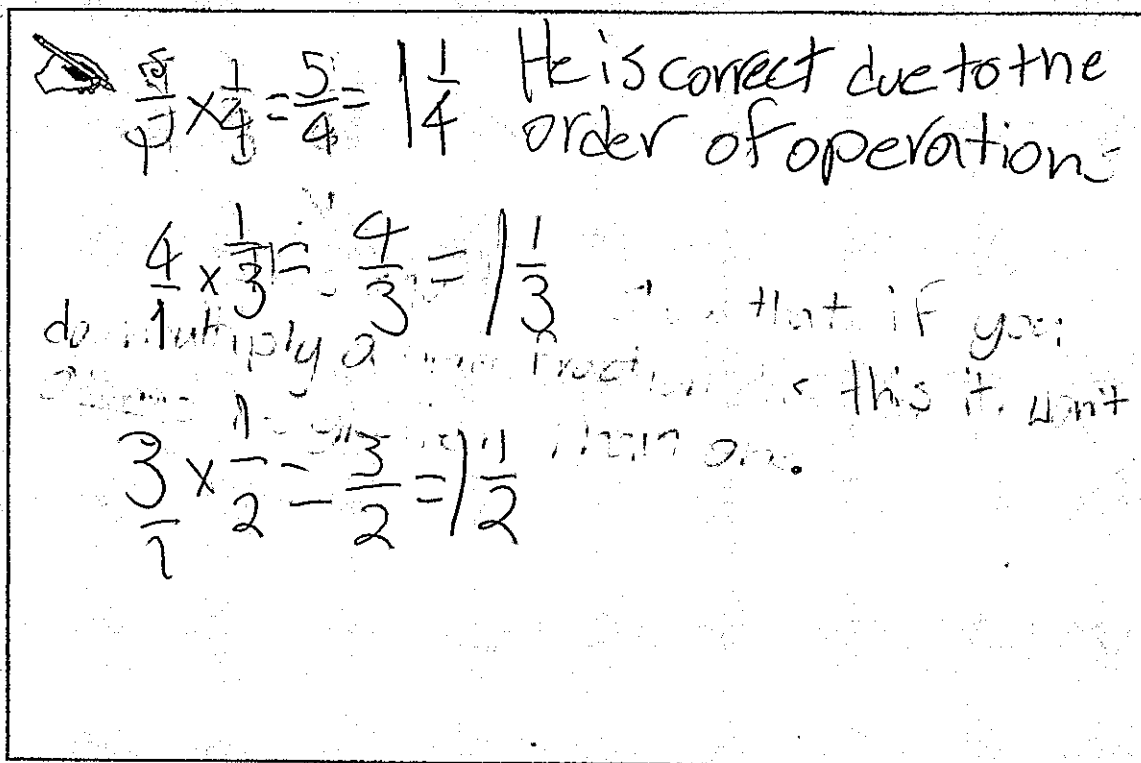 5/1 × 1/4 = 5/4 = 1 1/4 He is correct due to the
order of operation
4/1 × 1/3 = 4/3 = 1 1/3
that if you
do multiply a
this it won't
3/1 × 1/2 = 3/2 = 1 1/2